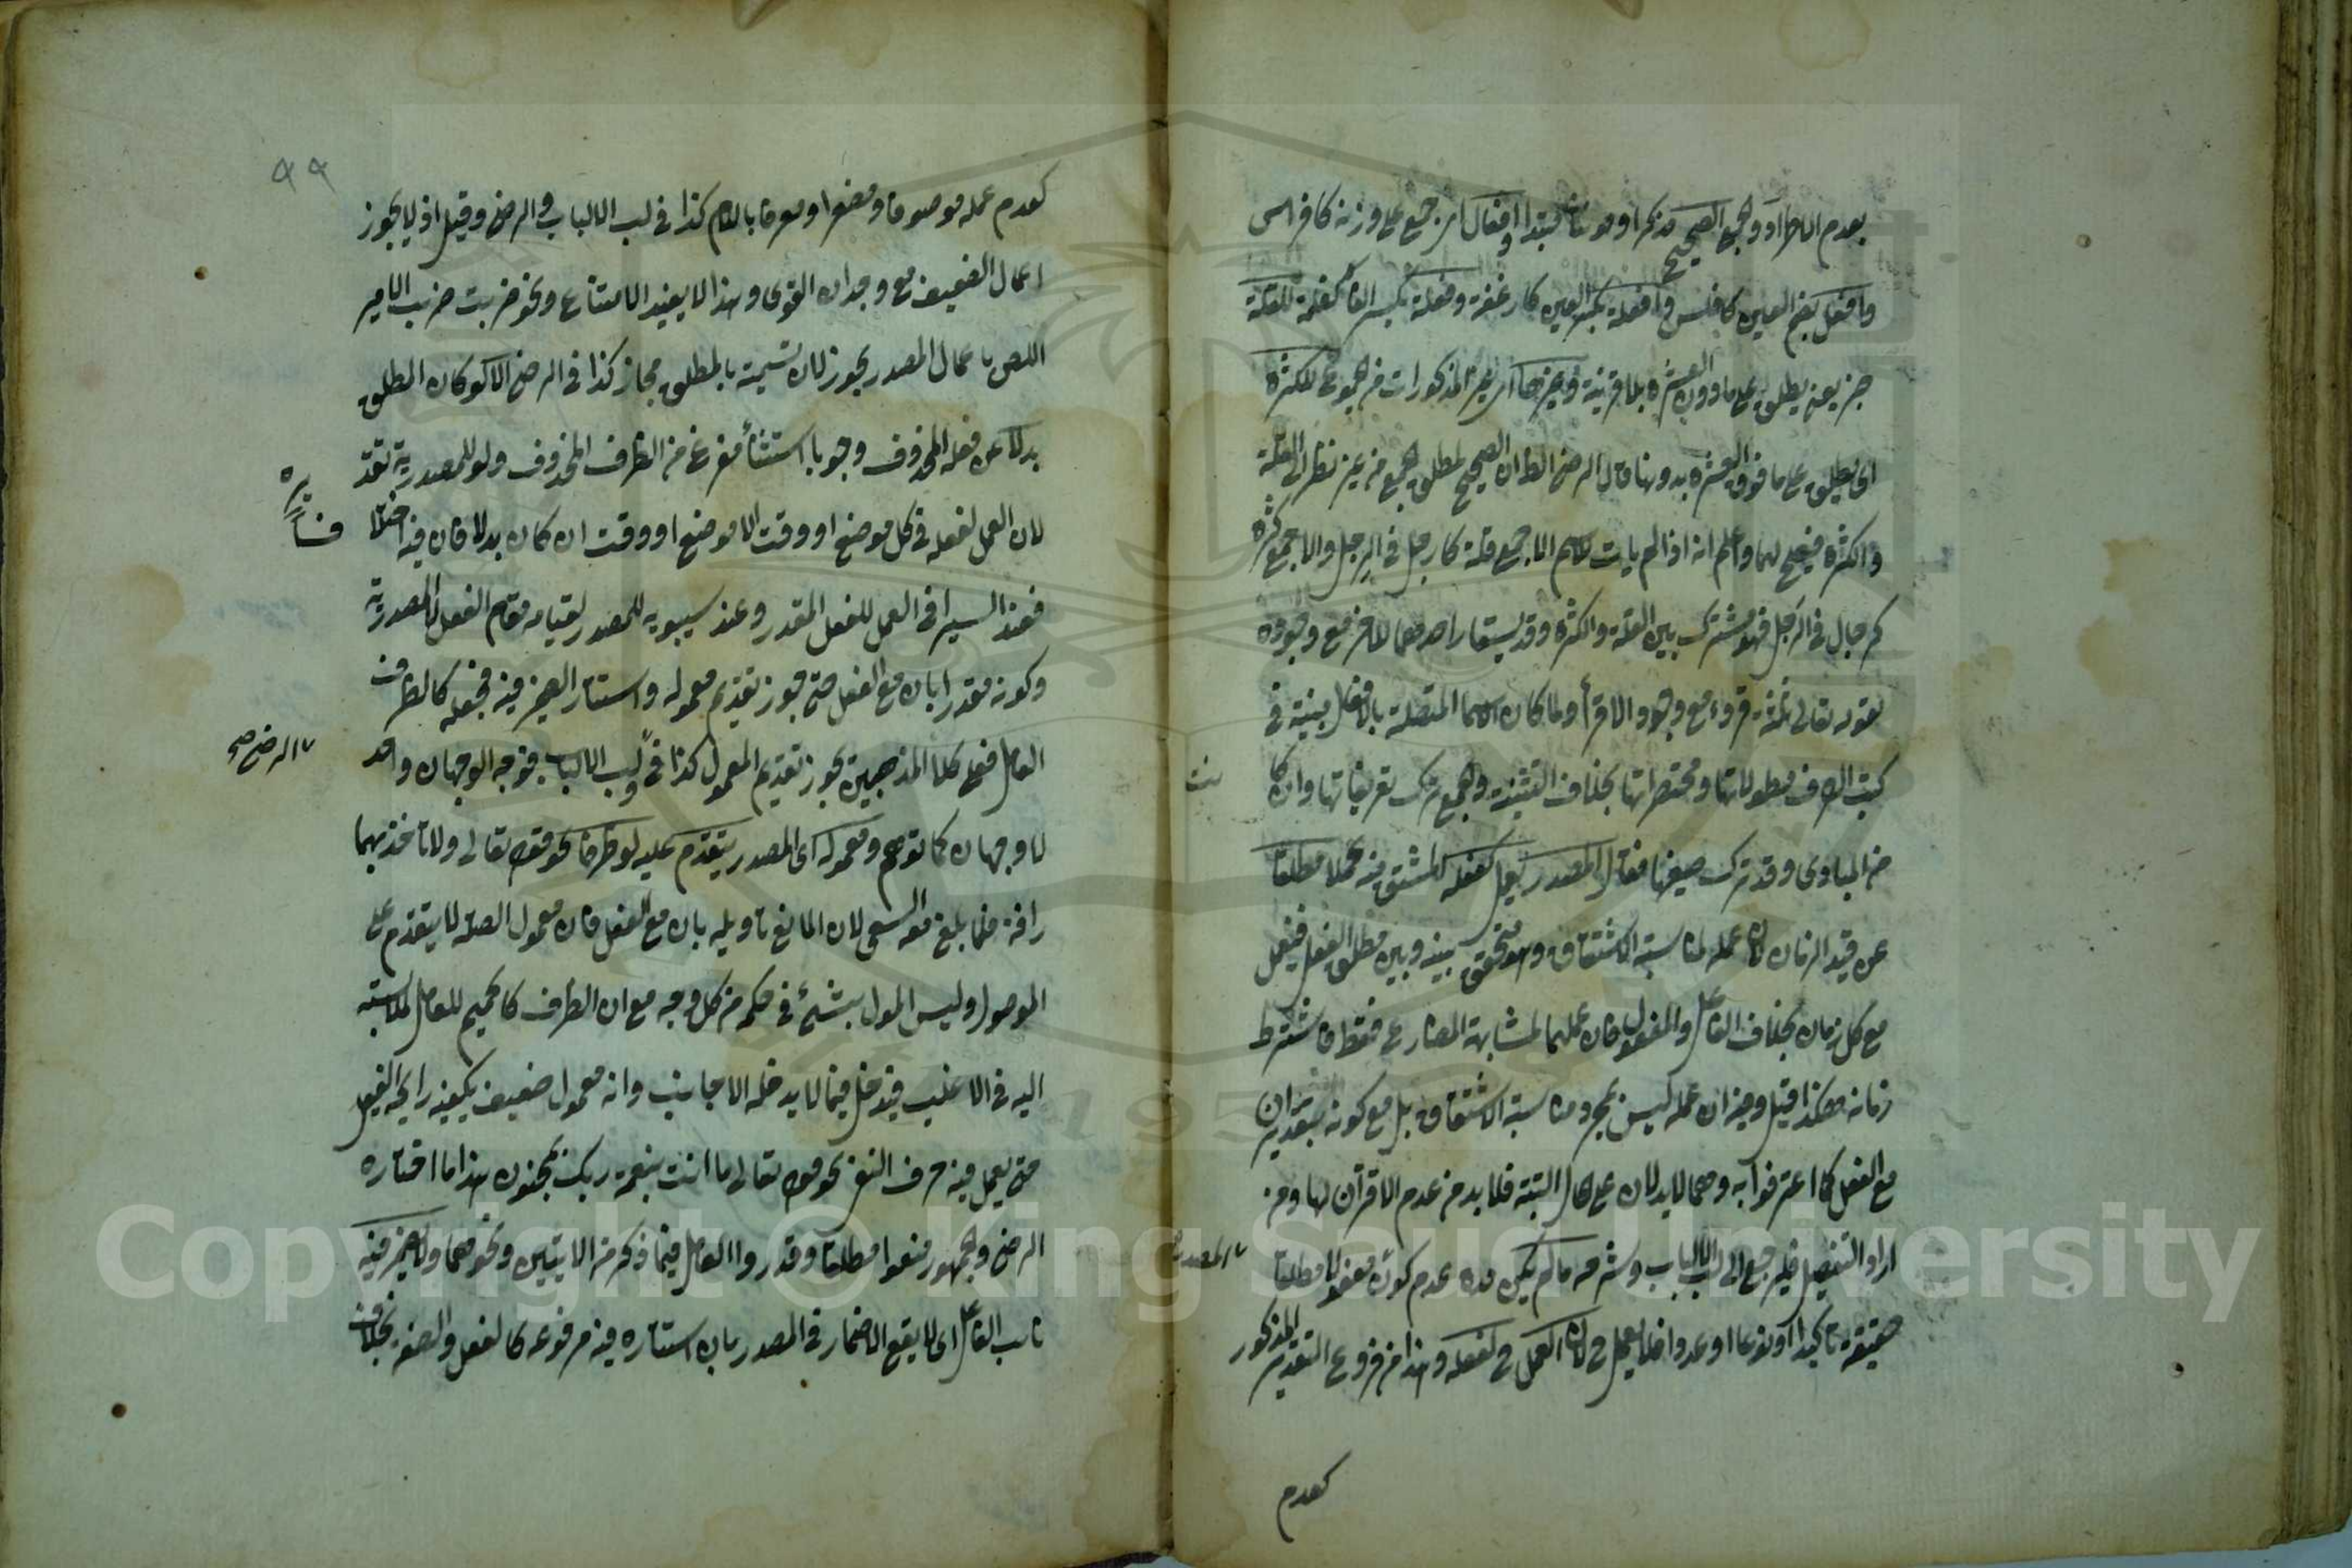 بعدم الاطراد والجمع الصحيح مذكرا او مونثا مبتدا وافعال اى جمع على وزنه كافراس
وافعل بضم العين كافلس وافعلة بكسر العين كارغفة وفعلة بكسر الفاء كغلمة للقلة
خبر يعنى يطلق على ما دون العشرة بلا قرينة وغيرها اى غير المذكورات من الجموع للكثرة
اى يطلق على ما فوق العشرة بدونها قال الرضى الظ ان الصحيح لمطلق الجمع من غير نظر الى القلة
والكثرة فيصلح لهما واعلم انه اذا لم يات للاسم الا جمع قلة كارجل فى الرجل والا جمع كثرة
كرجال فى الرجل فهو مشترك بين القلة والكثرة وقد يستعار احدهما للاخر مع وجوده
كقوله تعالى ثلثة قروء مع وجود الاقرأ ولما كان الاسما المتصلة بالافعل مبينة فى
كتب الصرف مطولاتها ومختصراتها بخلاف التثنية والجمع ترك تعريفاتها وان كا
نت
من المبادى وقد ترك صيغها فقال المصدر يعمل كفعله المشتق منه عملا مطلقا
عن قيد الزمان لان عمله لمناسبة الاشتقاق وهو متحقق بينه وبين مطلق الفعل فيعمل
مع كل زمان بخلاف الفاعل والمفعول فان عملهما لمشابهة المضارع فقط فاشترط
زمانه هكذا قيل وفيه ان عمله ليس بمجرد مناسبة الاشتقاق بل مع كونه بتقدير ان
مع الفعل كما اعترفوا به وهما لا يدلان على الحال البتة فلا بد من عدم الاقتران لها ومن
اراد التفصيل فليرجع الى لب الالباب وشرحه ما لم يكن مدة عدم كونه مفعولا مطلقا
المصدر
حقيقة تاكيدا او نوعا او عددا فلا يعمل ح لان العمل ح لفعله وهذا من فروع التقدير المذكور
كعدم
٩٩
كعدم عمله موصوفا ومصغرا ومعرفا باللام كذا فى لب الالباب والرضى وقيل اذ لا يجوز
اعمال الضعيف مع وجدان القوى وهذا لا يفيد الامتناع ونحو ضربت ضرب الامير
اللص باعمال المصدر يجوز لان تسميته بالمطلق مجاز كذا فى الرضى الا لو كان المطلق
بدلا عن فعله المحذوف وجوبا استثناء مفرغ من الظرف المحذوف ولو للمصدرية تقد
يره
لان العمل لفعله فى كل موضع او وقت الا موضع او وقت ان كان بدلا فان فيه اختلا
فا
فعند السيرافى العمل للفعل المقدر وعند سيبويه للمصدر لقيامه مقام الفعل لا للمصدرية
وكونه مقدرا بان مع الفعل حتى يجوز تقديم معموله واستتار الضمير فيه فجعله كالظرف
العامل فعلى كلا المذهبين يجوز تقديم المعمول كذا فى لب الالباب فوجه الوجهان واحد
الرضى صح
لا وجهان كما توهم ومعموله اى المصدر يتقدم عليه لو ظرفا نحو قوله تعالى ولا تاخذكم بهما
رافة فلما بلغ معه السعى لان المانع تاويله بان مع الفعل فان معمول الصلة لا يتقدم على
الموصول وليس المول بشئ فى حكمه من كل وجه مع ان الظرف كالحميم للعامل لملابسته
اليه فى الاغلب فيدخل فيما لا يدخله الاجانب وانه معمول ضعيف يكفيه رايحة الفعل
حتى يعمل فيه حرف النفى نحو قوله تعالى ما انت بنعمة ربك بمجنون هذا ما اختاره
الرضى والجمهور منعوا مطلقا وقدروا العامل فيما ذكر من الايتين ونحوهما ولا يضمر فيه
نائب الفاعل اى لا يقع الاضمار فى المصدر بان استتاره فيه مرفوعه كالفعل والصفة بخلاف